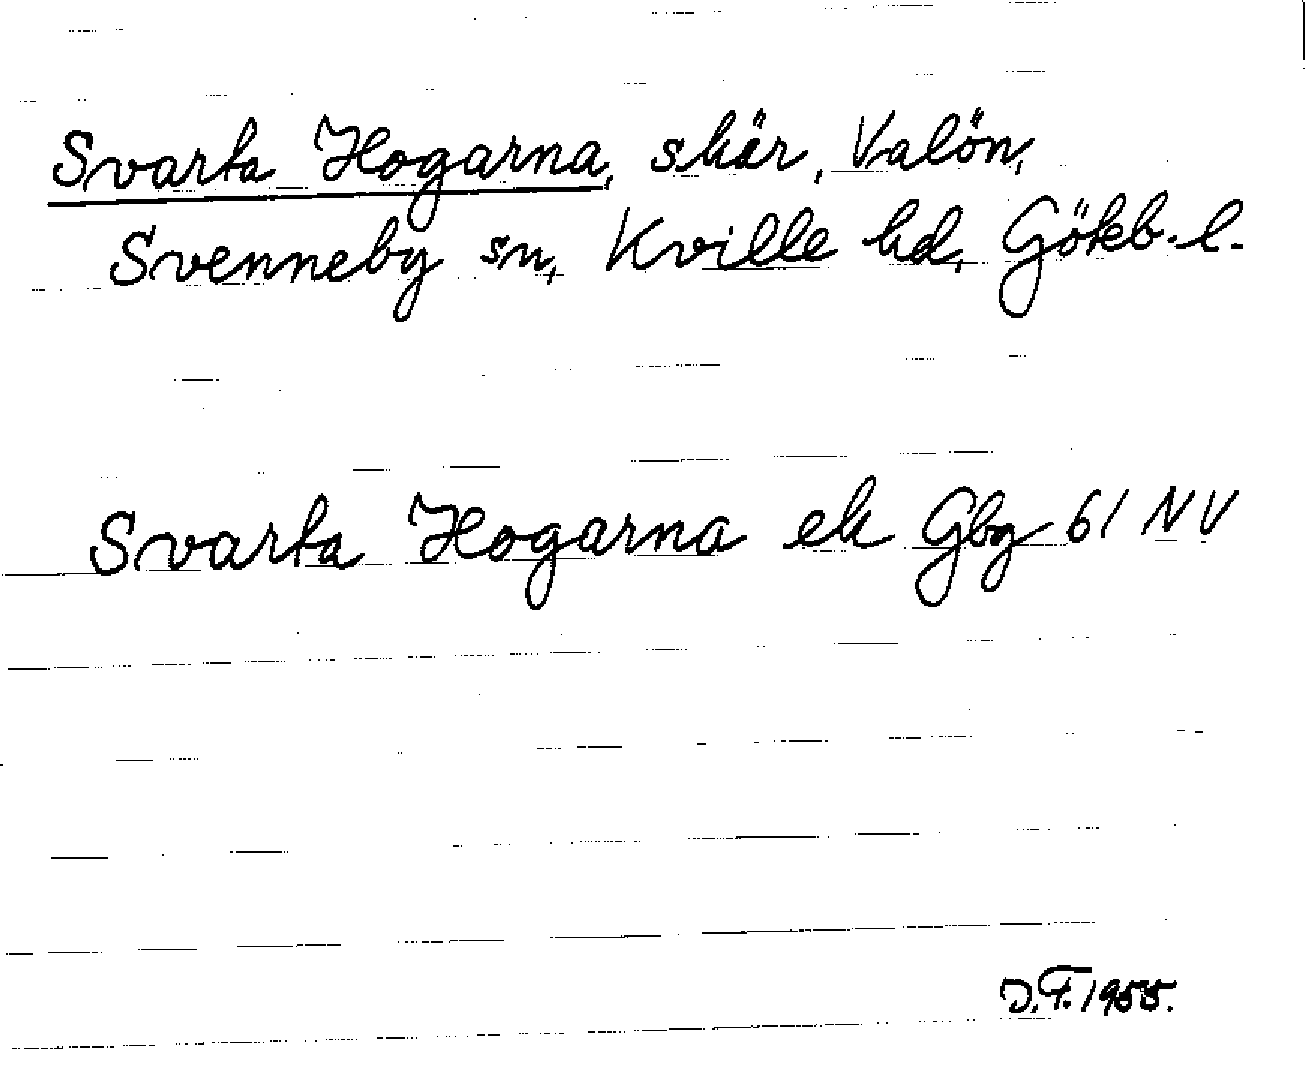 Svarta Hogarna, skär, Valön,
Svenneby sn, Kville hd, Gökb. l.
Svarta Hogarna ek Gbg 61 NV
J.F. 1955.